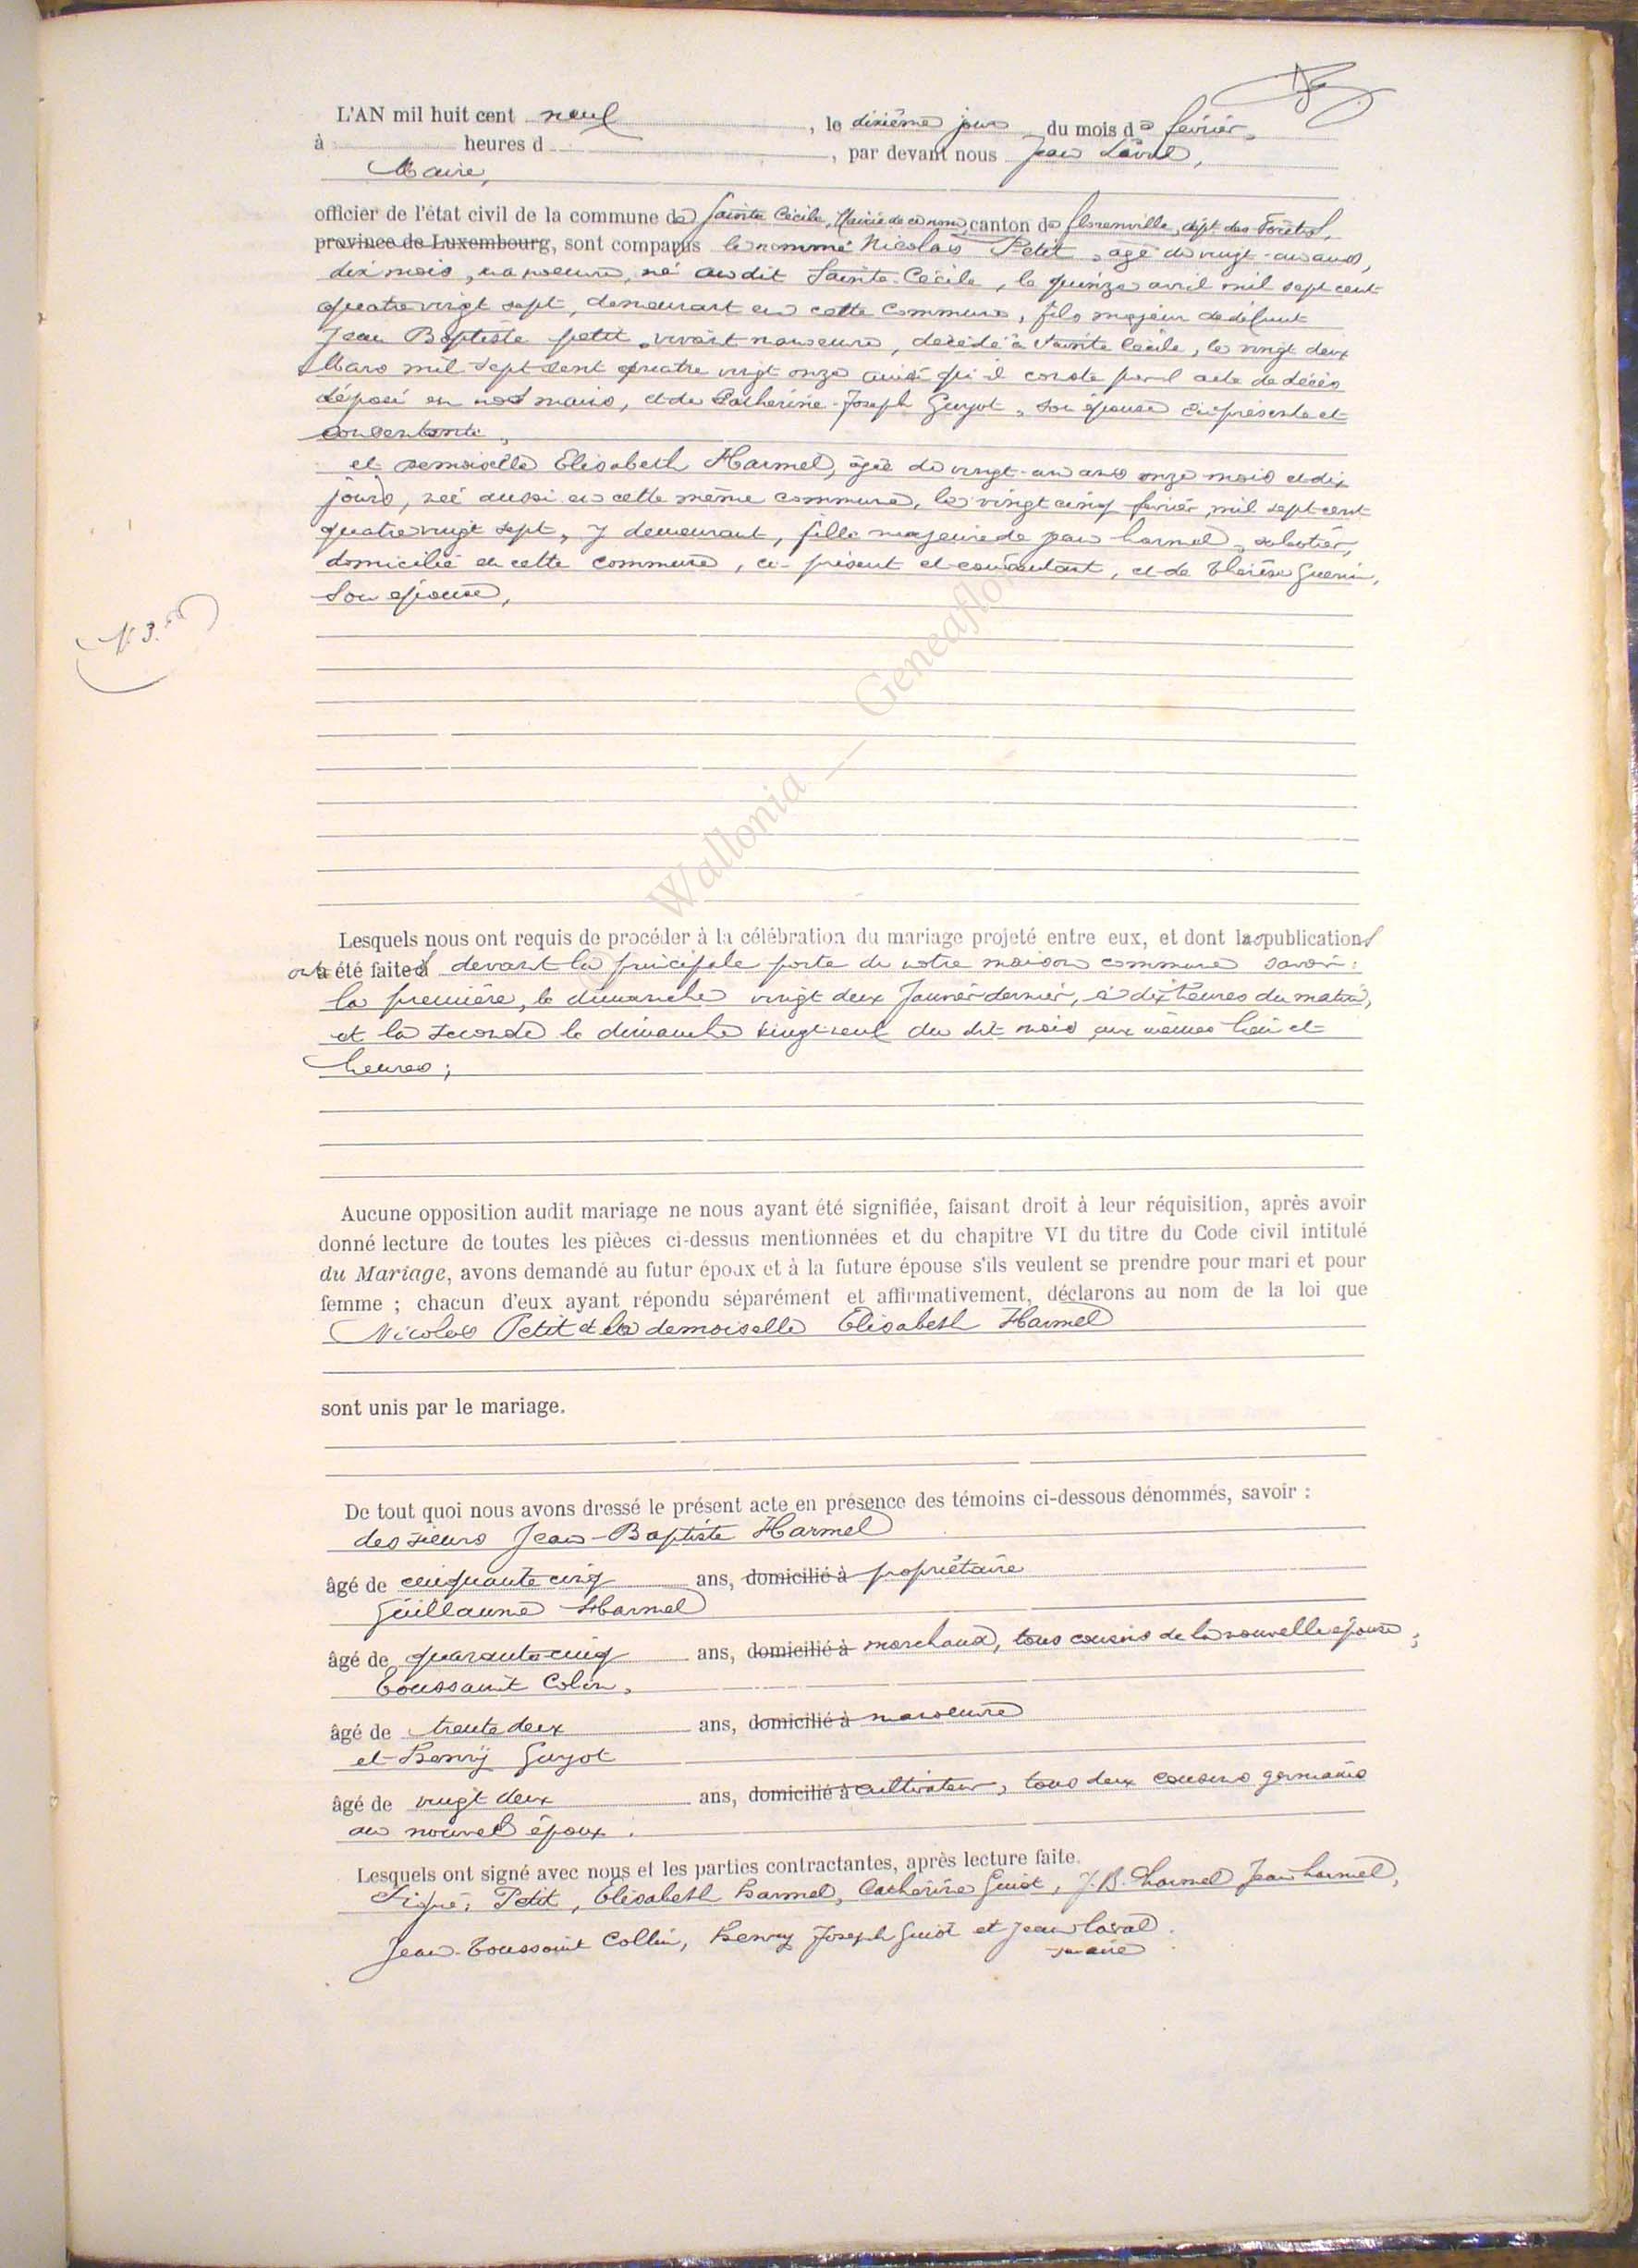 L'AN mil huit cent neuf, le dixième jour du mois de février,
à heures d, par devant nous Jean Laval,
Maire,
officier de l'état civil de la commune de Sainte Cécile, Mairie de ce nom, canton de Florenville, dépt des Forêts,
province de Luxembourg, sont comparus le nommé Nicolas Petit, âgé de vingt-un ans,
dix mois, manoeuvre, né au dit Sainte-Cécile, le quinze avril mil sept cent
quatre vingt sept, demeurant en cette commune, fils majeur de défunt
Jean Baptiste petit, vivant manoeuvre, décédé à Sainte Cécile, le vingt deux
Mars mil sept cent quatre vingt onze ainsi qu'il conste par l'acte de décès
déposé en nos mains, et de Catherine-Joseph Guyot, son épouse ci-présente et
consentante,
et demoiselle Elisabeth Harmel, âgée de vingt-un ans onze mois et dix
jours, née aussi en cette même commune, le vingt cinq février mil sept cent
quatre vingt sept, y demeurant, fille majeure de jean harmel, sabotier,
domicilié en cette commune, ci-présent et consentant, et de Thérèse Guerin,
son épouse,
N. 3.
© Wallonia — Geneaflor
Lesquels nous ont requis de procéder à la célébration du mariage projeté entre eux, et dont les publications
ont été faites devant la principale porte de notre maison commune savoir:
la première, le dimanche vingt deux Janvier dernier, à dix heures du matin,
et la seconde le dimanche vingt neuf du dit mois aux mêmes lieu et
heures;
Aucune opposition audit mariage ne nous ayant été signifiée, faisant droit à leur réquisition, après avoir
donné lecture de toutes les pièces ci-dessus mentionnées et du chapitre VI du titre du Code civil intitulé
du Mariage, avons demandé au futur époux et à la future épouse s'ils veulent se prendre pour mari et pour
femme ; chacun d'eux ayant répondu séparément et affirmativement, déclarons au nom de la loi que
Nicolas Petit et la demoiselle Elisabeth Harmel
sont unis par le mariage.
De tout quoi nous avons dressé le présent acte en présence des témoins ci-dessous dénommés, savoir :
des sieurs Jean-Baptiste Harmel
âgé de cinquante cinq ans, domicilié à propriétaire
Guillaume Harmel
âgé de quarante-cinq ans, domicilié à marchand, tous cousins de la nouvelle épouse;
Toussaint Colin,
âgé de trente deux ans, domicilié à manoeuvre
et Henry Guyot
âgé de vingt deux ans, domicilié à cultivateur, tous deux cousins germains
au nouvel époux.
Lesquels ont signé avec nous et les parties contractantes, après lecture faite.
Signé: Petit, Elisabeth harmel, Catherine Guiot, J. B. harmel Jean harmel,
Jean-Toussaint Collin, henry Joseph guiot et jean laval.
maire